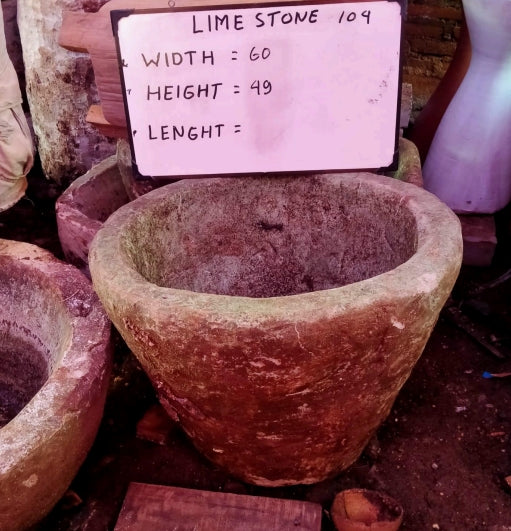 LIME STONE 109
WIDTH = 60
HEIGHT = 49
LENGHT =